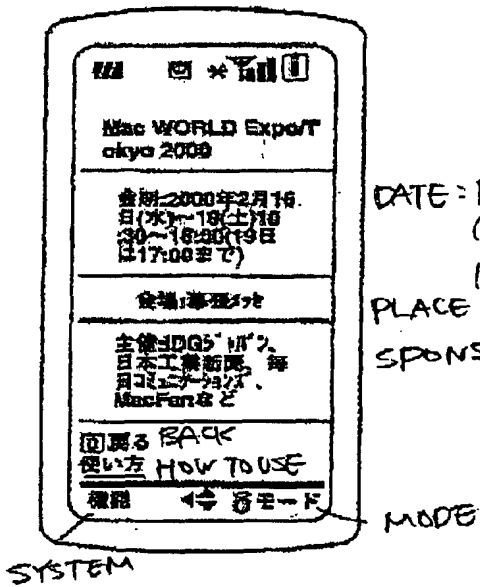 Mac WORLD Expo/T
okyo 2000
会期:2000年2月16
日(水)~19(土)10
:30~18:00(19日
は17:00まで)
会場:幕張メッセ
主催:IDGジャパン、
日本工業新聞、毎
日コミュニケーションズ、
MacFanなど
戻る BACK
使い方 HOW TO USE
機能 モード
DATE:
PLACE
SPONS
MODE
SYSTEM